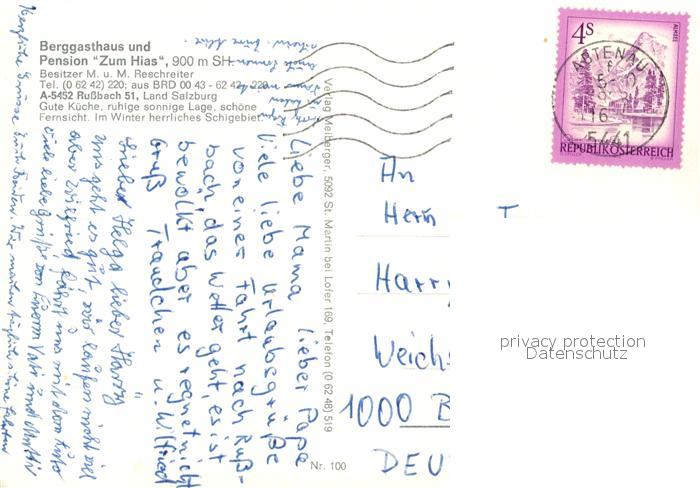 Berggasthaus und
Pension "Zum Hias", 900 m SH.
Besitzer M. u. M. Reschreiter
Tel. (0 62 42) 220; aus BRD 00 43 - 62 42 - 220
A-5452 Rußbach 51, Land Salzburg
Gute Küche, ruhige sonnige Lage, schöne
Fernsicht. Im Winter herrliches Schigebiet.
Verlag Melberger, 5092 St. Martin bei Lofer 169, Telefon (0 62 48) 519
Nr. 100
Liebe Mama lieber Papa
Viele liebe Urlaubsgrüße
von einer Fahrt nach Ruß-
bach, das Wetter geht, es ist
bewölkt aber es regnet nicht
Gruß Traudchen u. Wilfried
Liebe Helga lieber Harry
uns geht es gut, wir laufen nicht viel
aber Wilfried fährt uns mit dem Auto
viele liebe Grüße von Eurem Vati und Mutti
Herzliche Grüße
4 S
ABTENAU
5441
REPUBLIK ÖSTERREICH
An
Herrn T
Harry
Weichs
1000 B
DEU
privacy protection
Datenschutz